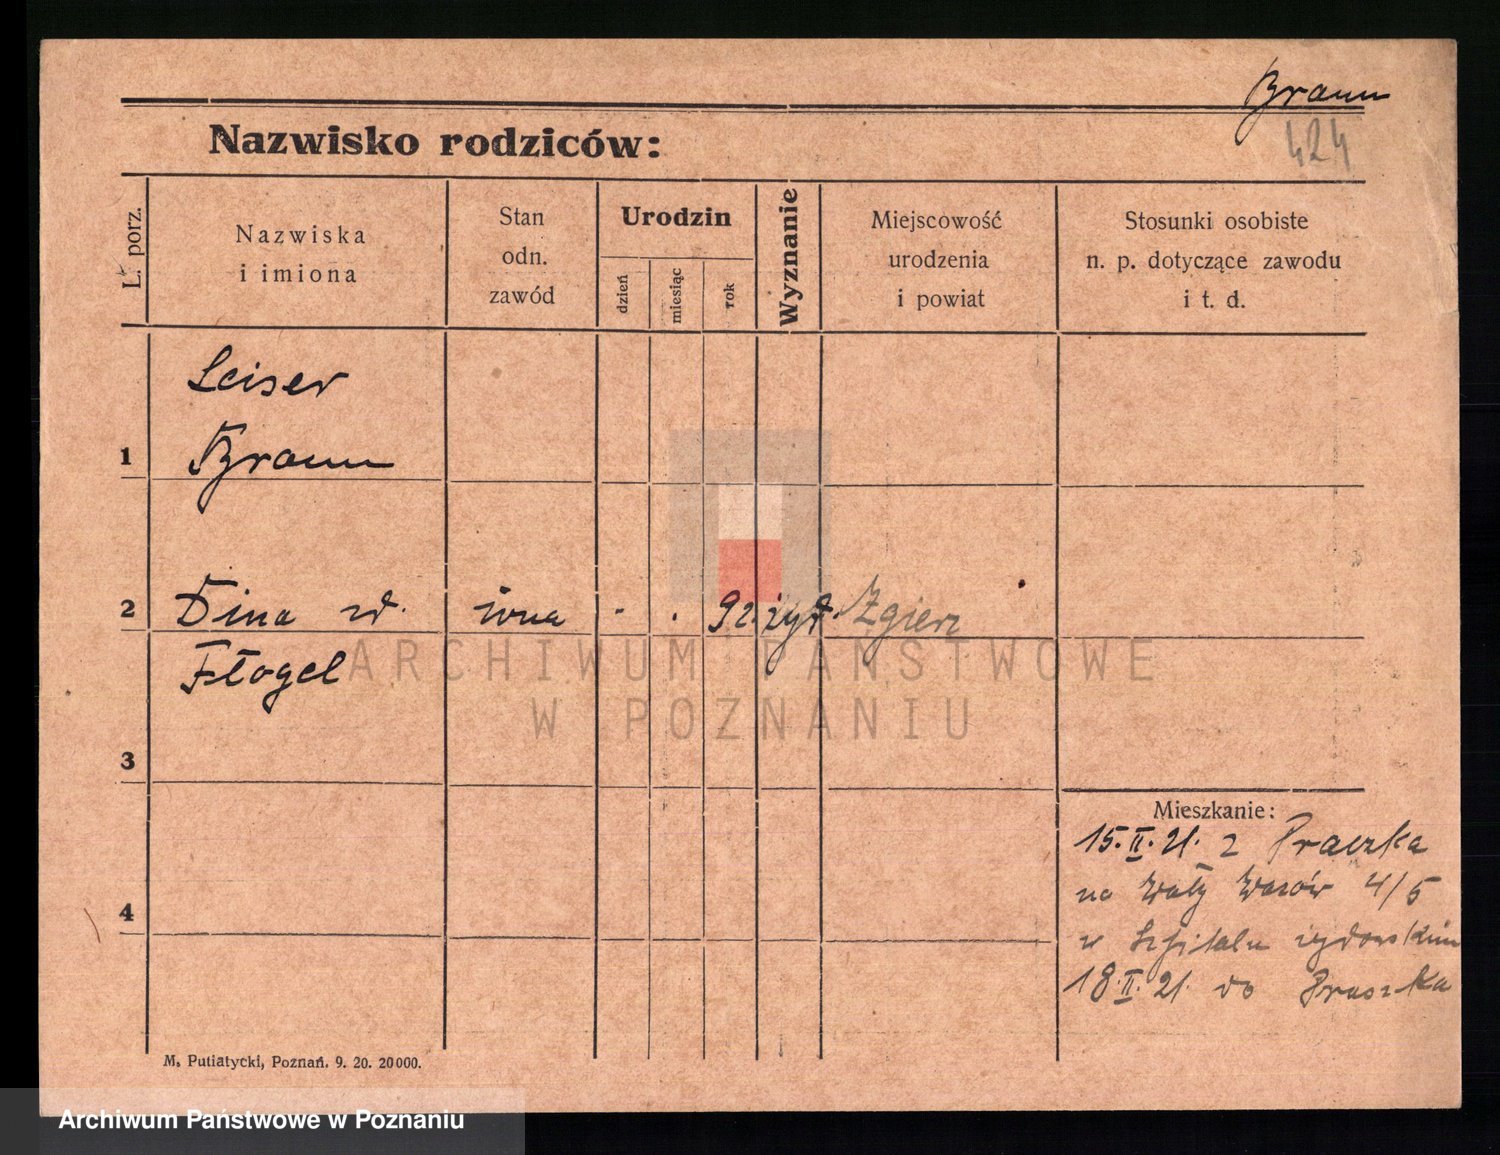 Braun
424
Nazwisko rodziców:
L. porz.
Nazwiska
i imiona
Stan
odn.
zawód
Urodzin
dzień
miesiąc
rok
Wyznanie
Miejscowość
urodzenia
i powiat
Stosunki osobiste
n. p. dotyczące zawodu
i t. d.
Leiser
1 Braun
2 Dina żd. żona . . 92. żyd. Zgierz
Flogel
3
Mieszkanie:
15.II.21. z Praszka
na Wały Wazów 4/5
w Szpitalu żydowskim
18.II.21. do Praszka
4
M. Putiatycki, Poznań. 9. 20. 20000.
ARCHIWUM PAŃSTWOWE
W POZNANIU
Archiwum Państwowe w Poznaniu